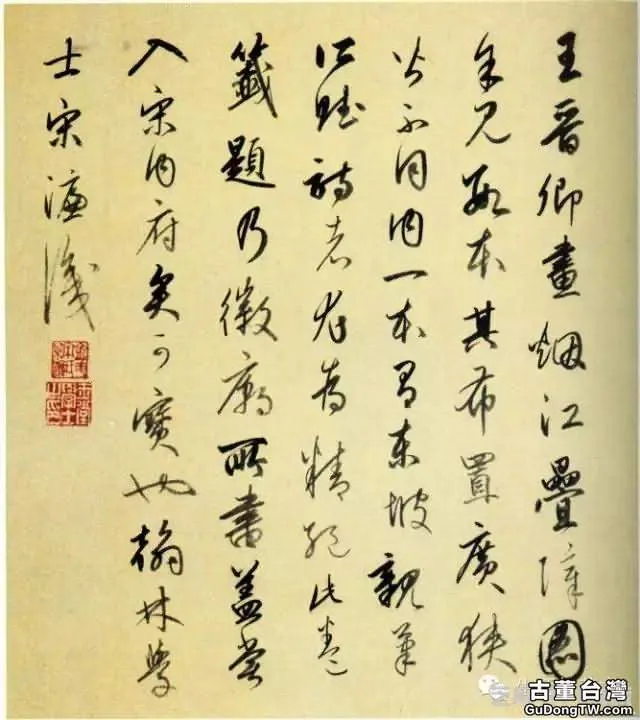 王晉卿畫烟江疊嶂圖
余見數本其布置廣狹
不同內一本有東坡親筆
賦詩者尤為精絕此卷
籤題乃徽廟所書蓋嘗
入宋內府矣可寶也翰林學
士宋濂識
古董台灣
GuDongTW.com